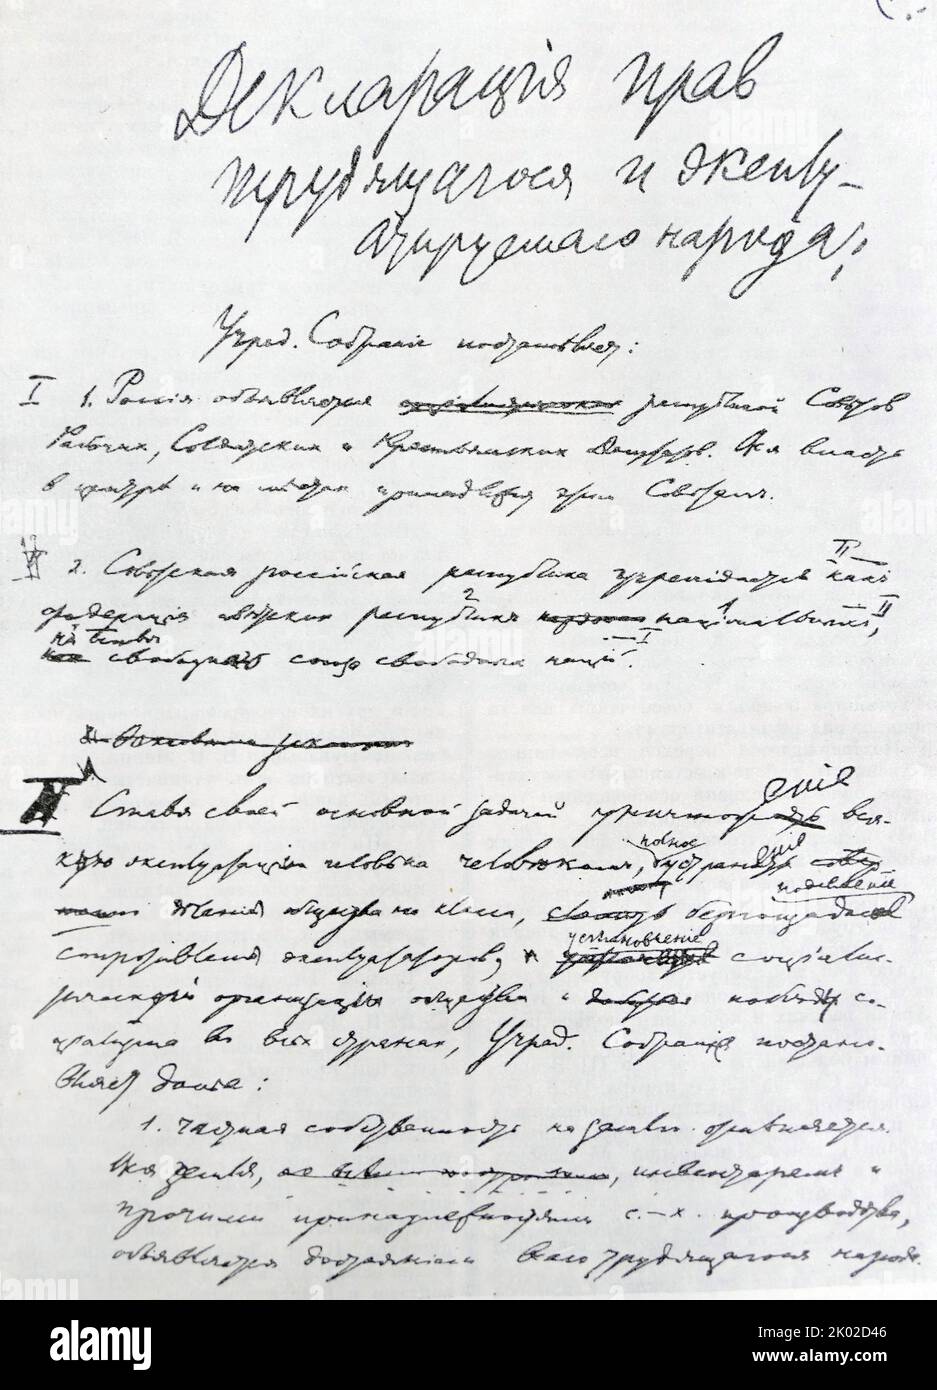 Декларація прав
трудящагося и эксплу-
атируемаго народа:
Учред. Собраніе постановляет:
I 1. Россія объявляется республикой Советов
Рабочих, Солдатских и Крестьянских Депутатов. Вся власть
в центре и на местах принадлежит этим Советам.
2. Советская россійская республика учреждается II как
федерація советских республик 2 національных 1, II
на основе свободнаго союза свободных націй. I
II Ставя своей основной задачей уничтоженіе вся-
кой эксплуатаціи человека человеком, полное устраненіе
деленія общества на классы, безпощадное подавленіе
сопротивленія эксплуататоров, установленіе соціалис-
тической организаціи общества и победу со-
ціализма во всех странах, Учред. Собраніе постано-
вляет далее:
1. Частная собственность на землю отменяется.
Вся земля, инвентарем и
прочими принадлежностями с.-х. производства,
объявляется достояніем всего трудящагося народа.
alamy
alamy
Image ID: 2K02D46
www.alamy.com